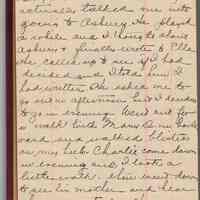 talked me into
going to Asbury. He played
a while and I thought about
Asbury & finally wrote to Ella
He called up to see if I had
decided and I told him I
had written. He asked me to
go out in afternoon but I decided
to go in evening. Went out for
a walk with Mary S. in
ward and walked
in my
Charlie came down
in evening and I took a
little walk. Then went down
to see his mother and hear